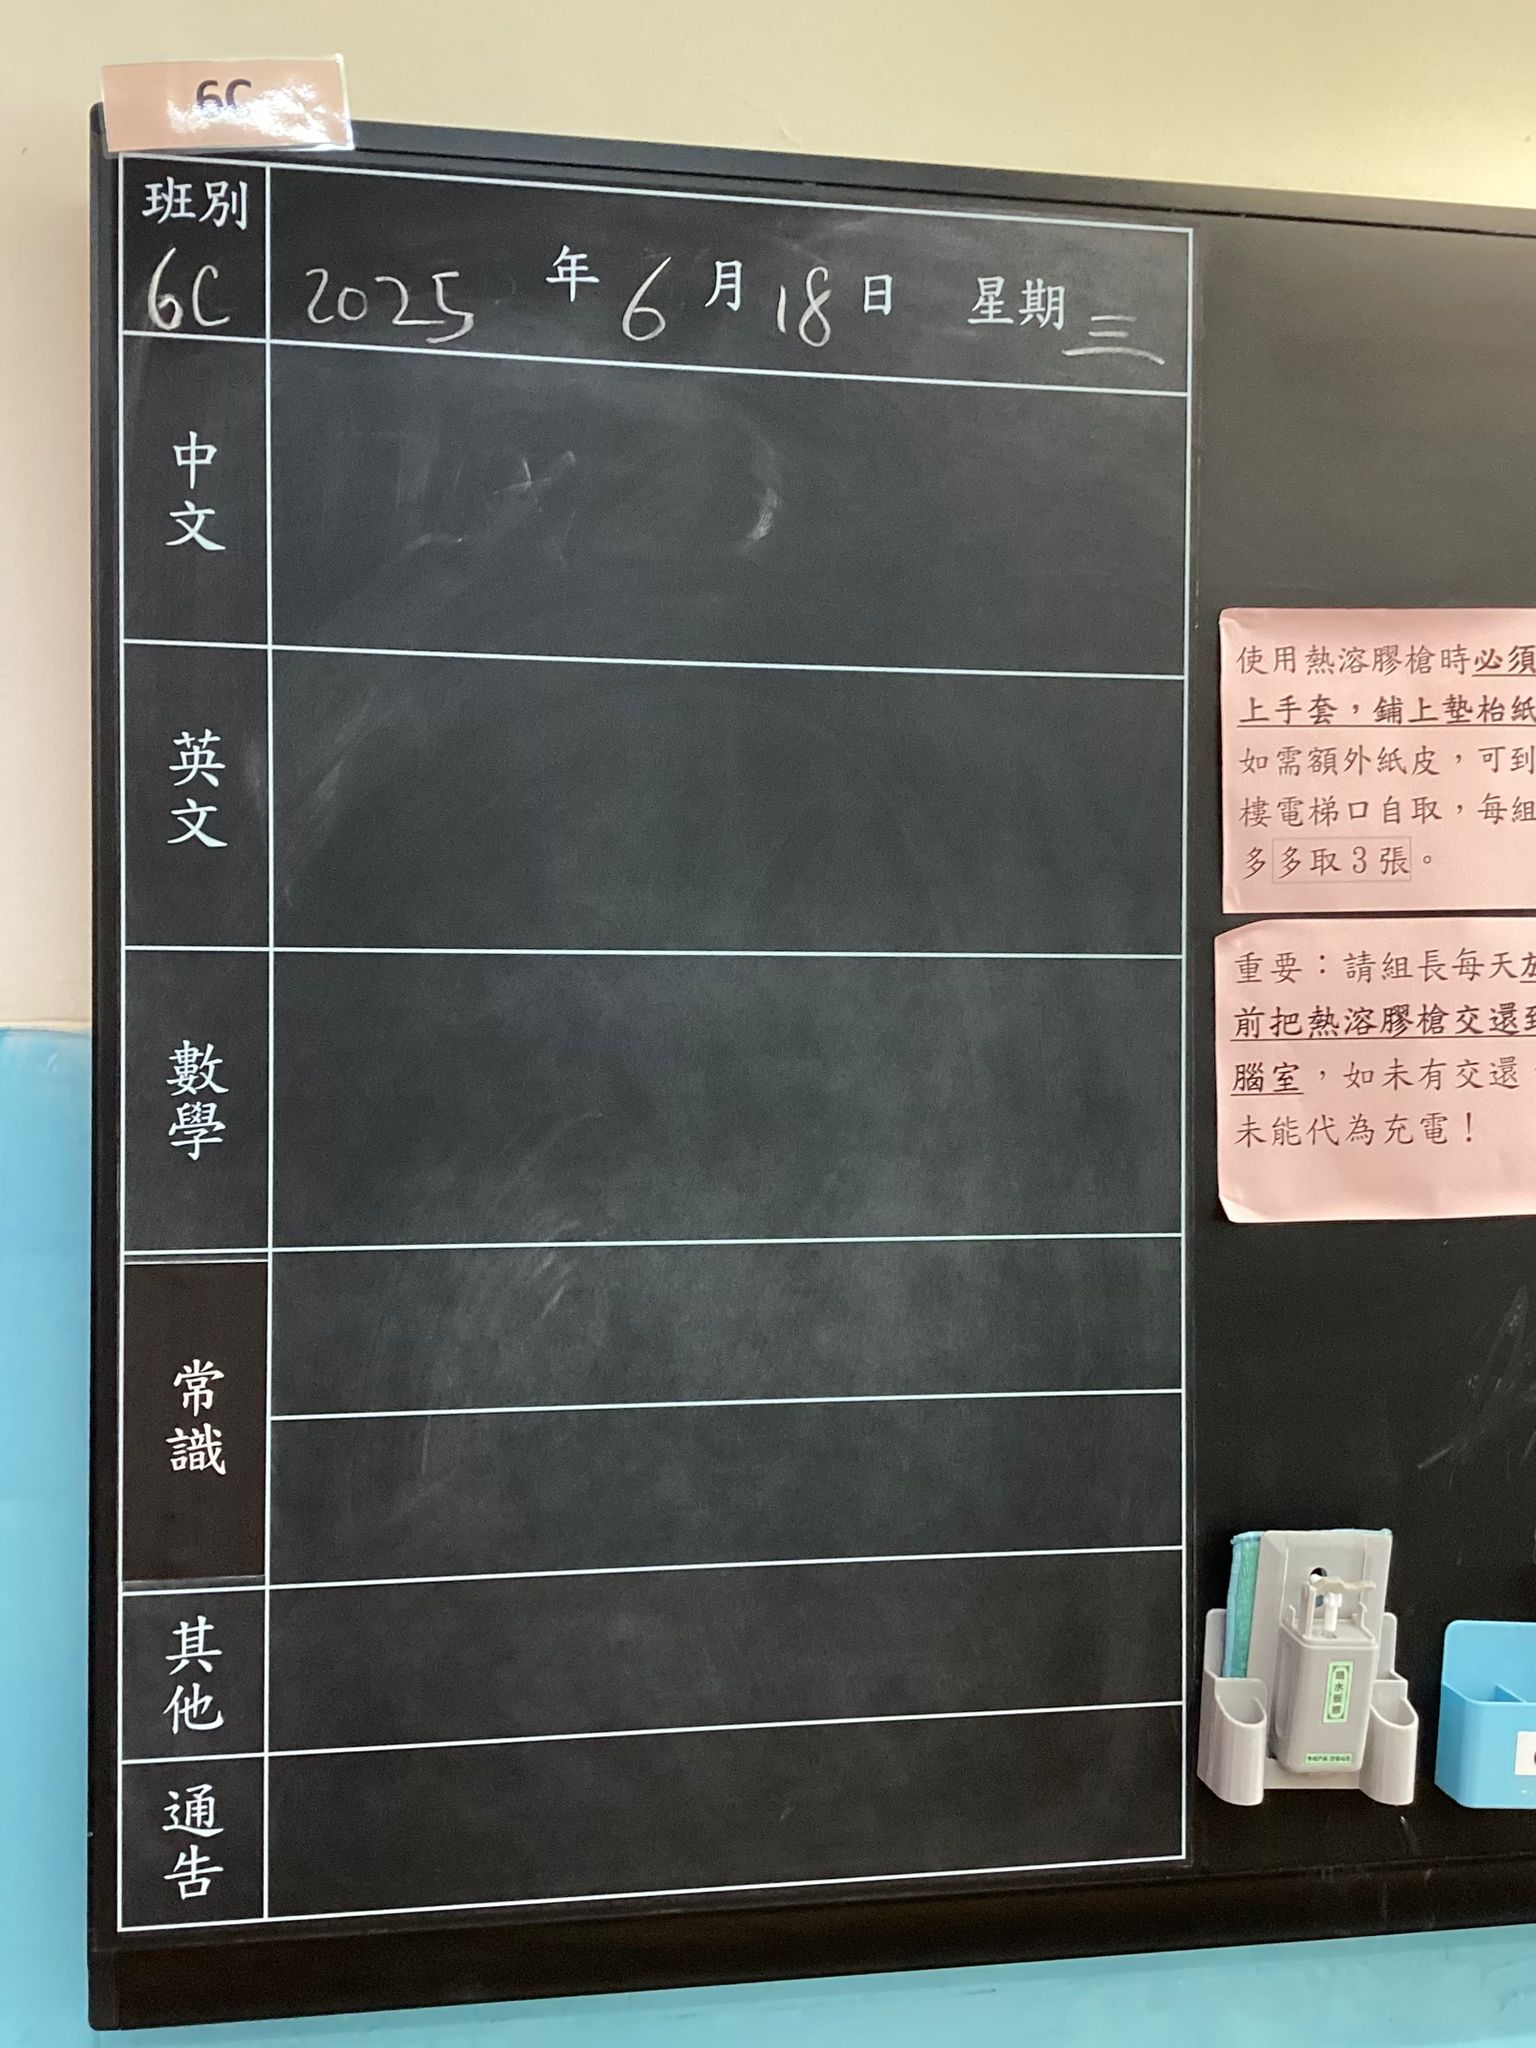 6C
班別
6C
2025 年 6 月 18 日 星期 三
中文
英文
數學
常識
其他
通告
使用熱溶膠槍時必須
上手套，鋪上墊枱紙
如需額外紙皮，可到
樓電梯口自取，每組
多多取3張。
重要：請組長每天放
前把熱溶膠槍交還到
腦室，如未有交還，
未能代為充電！
噴水板擦